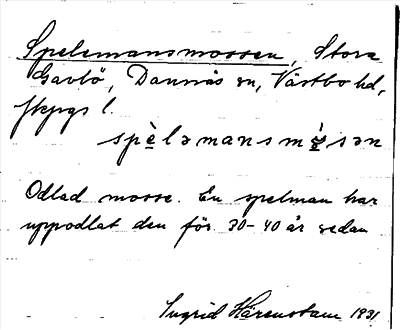 Spelemansmossen, Stora
Garbö, Dannäs sn, Västbo hd,
Jkpgs l.
spèləmansmòsən
Odlad mosse. En spelman har
uppodlat den för 30-40 år sedan
Ingrid Härenstam 1931